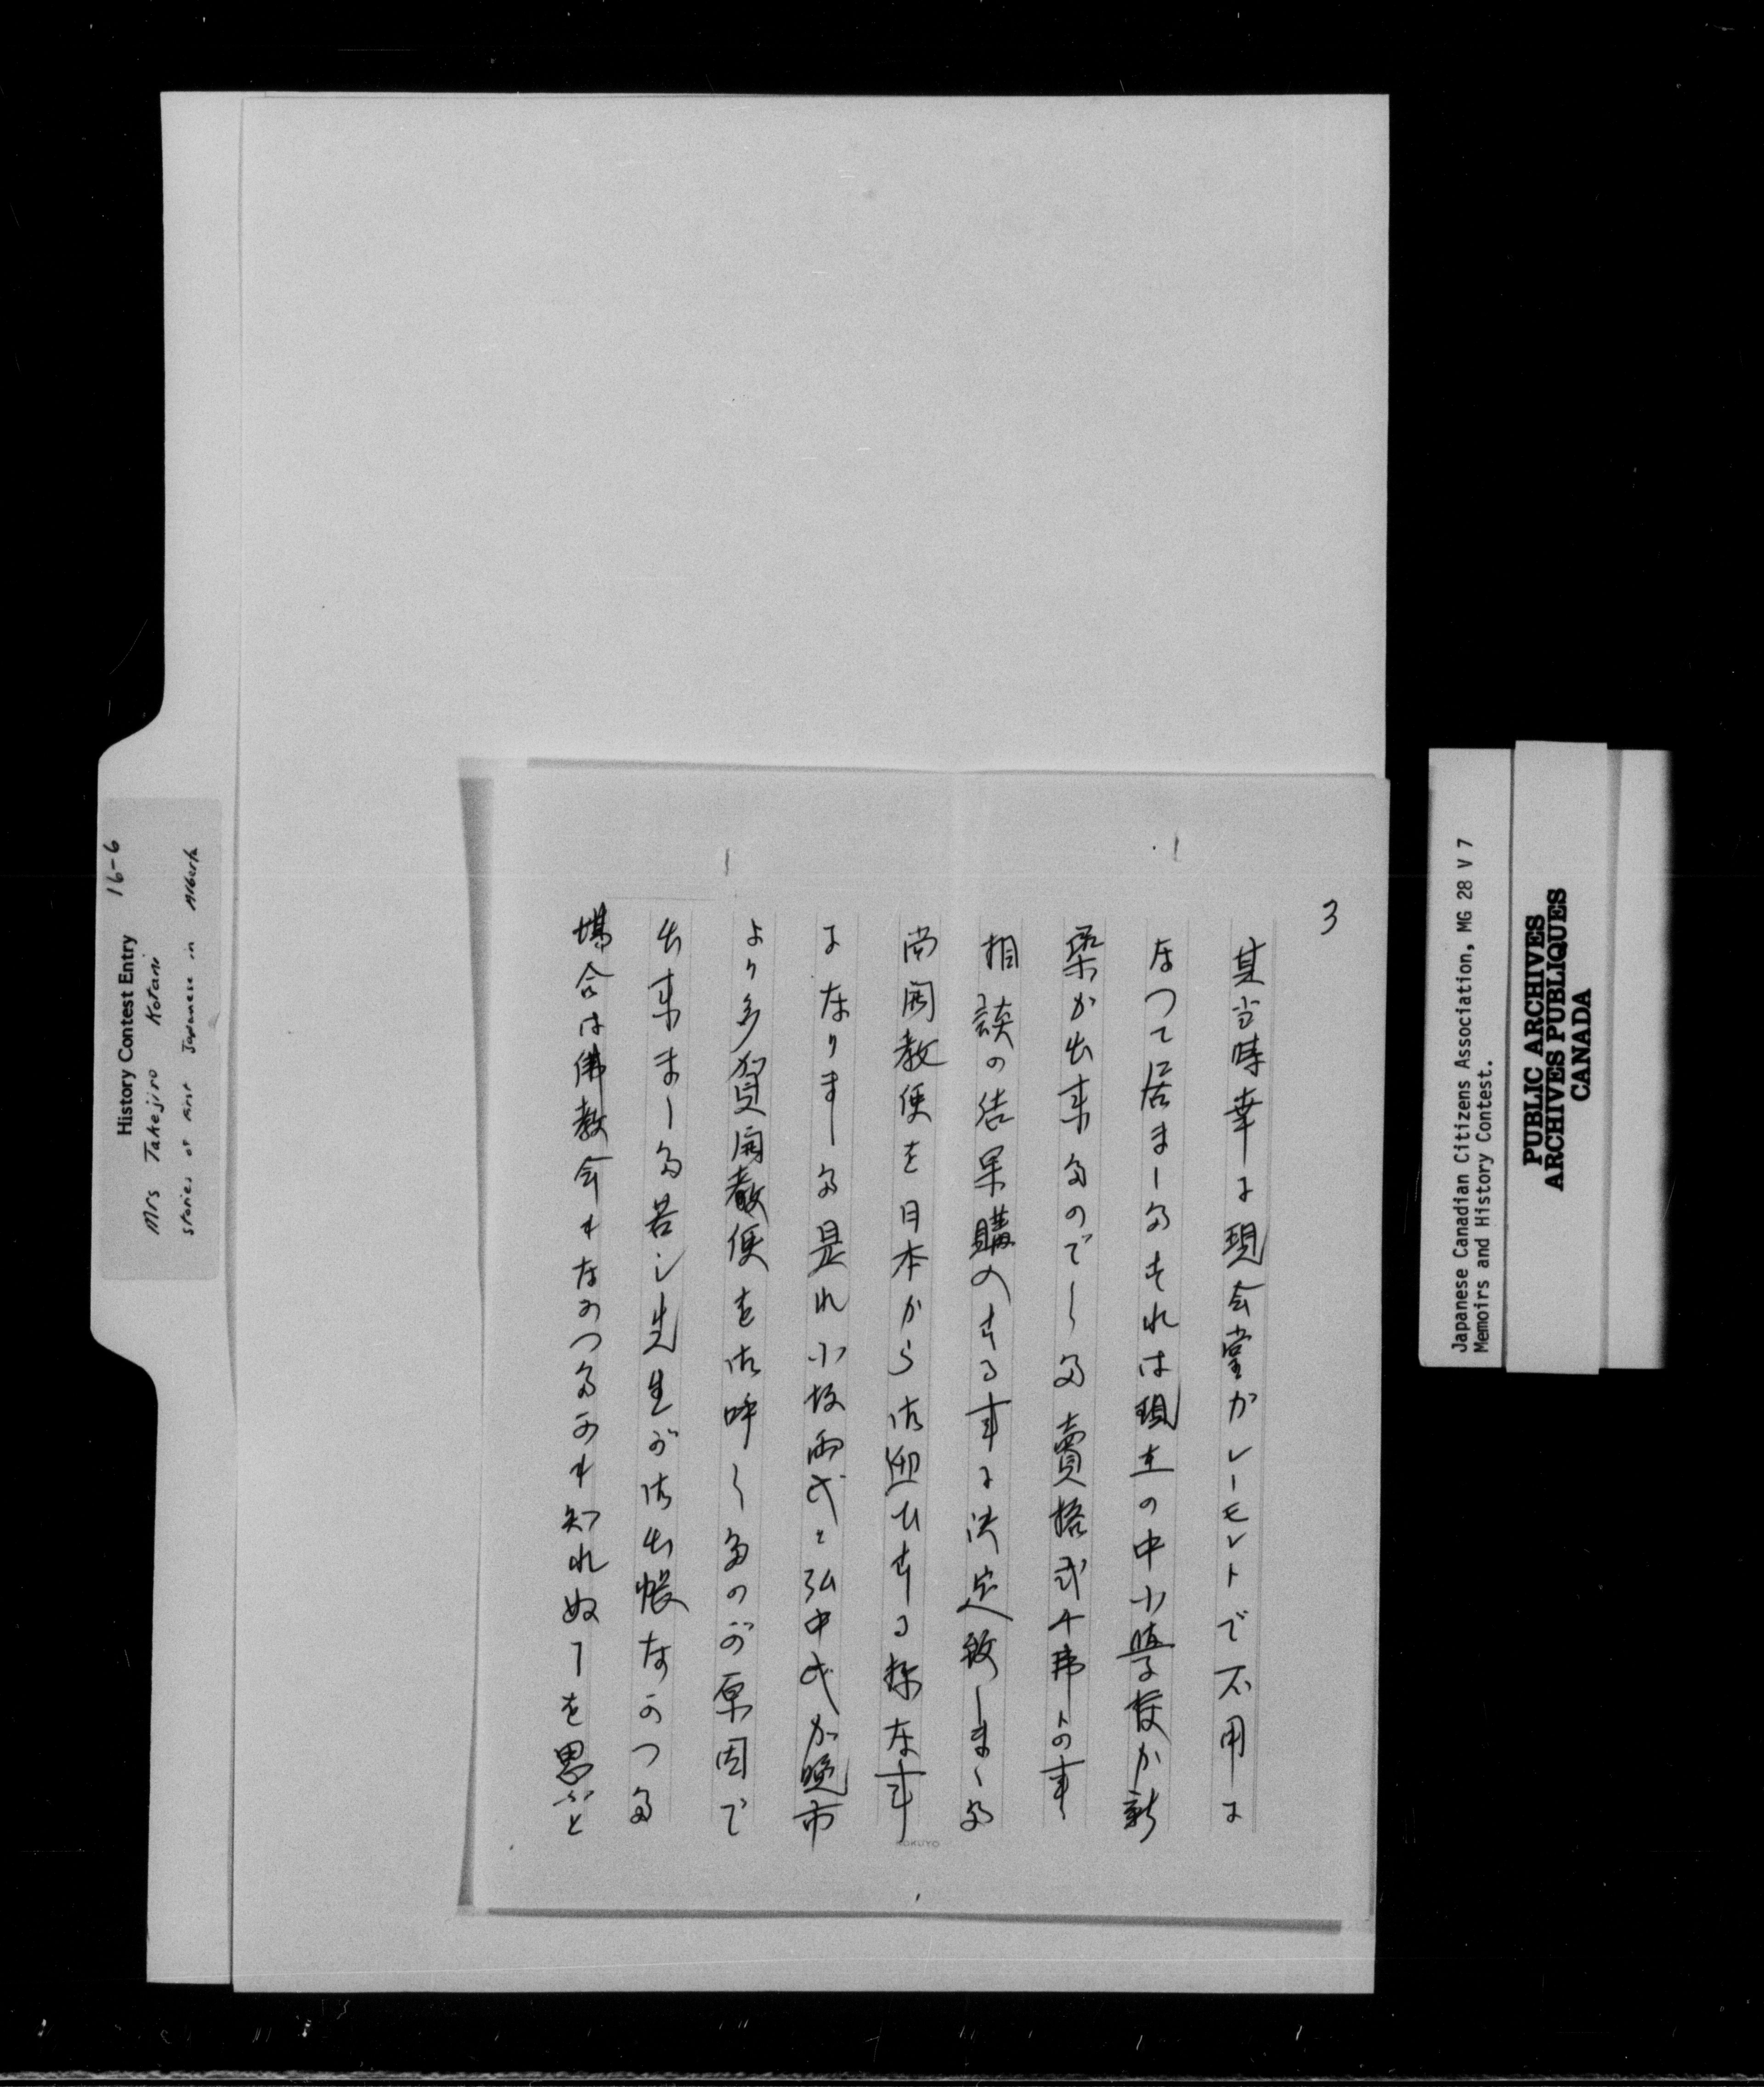 3
其当時幸に現会堂がレーモントで不用に
なつて居ましたそれは現在の中小學校が新
築が出来たのでした賣格弐千弗との事
相談の結果購入する事に決定致しました
尚開教使を日本から御迎ひする様な事
になりました是れ小坂両氏と弘中氏が晩市
より多賀開教使を御呼したのが原因で
出来ました若し先生が御出張なかつた
場合は佛教会もなかつたかも知れぬーを思ふと
KOKUYO
History Contest Entry 16-6
Mrs Takejiro Kotani
stories of First Japanese in Alberta
Japanese Canadian Citizens Association, MG 28 V 7
Memoirs and History Contest.
PUBLIC ARCHIVES
ARCHIVES PUBLIQUES
CANADA